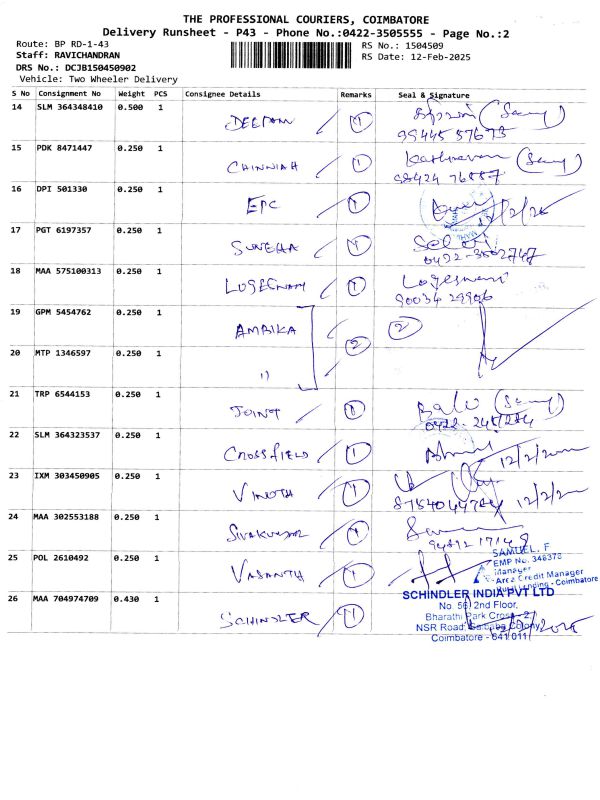 THE PROFESSIONAL COURIERS, COIMBATORE
Delivery Runsheet - P43 - Phone No.:0422-3505555 - Page No.:2
Route: BP RD-1-43
RS No.: 1504509
Staff: RAVICHANDRAN
RS Date: 12-Feb-2025
DRS No.: DCJB150450902
Vehicle: Two Wheeler Delivery
S No Consignment No Weight PCS Consignee Details Remarks Seal & Signature
14 SLM 364348410 0.500 1 DEEPAM 1 (Samy)
99445 57673
15 PDK 8471447 0.250 1 CHINNIAH 1 (Samy)
16 DPI 501330 0.250 1 EPC 1
17 PGT 6197357 0.250 1 SUNEHA 1 Selvi
0422-3502747
18 MAA 575100313 0.250 1 1 Logeswari
90034 29906
19 GPM 5454762 0.250 1 AMBIKA 2 2
20 MTP 1346597 0.250 1 "
21 TRP 6544153 0.250 1 JOINT 1 Balu (Samy)
22 SLM 364323537 0.250 1 CROSSFIELD 1
23 IXM 303450905 0.250 1 VINOTH 1
24 MAA 302553188 0.250 1 SIVAKUMAR 1
25 POL 2610492 0.250 1 VASANTH 1
SAMUEL. F
EMP No. 348378
Manager
Area Credit Manager
26 MAA 704974709 0.430 1 SCHINDLER 1
SCHINDLER INDIA PVT LTD
No 56, 2nd Floor,
Bharathi Park Cross-2
NSR Road, Saibaba Colony
Coimbatore - 641 011